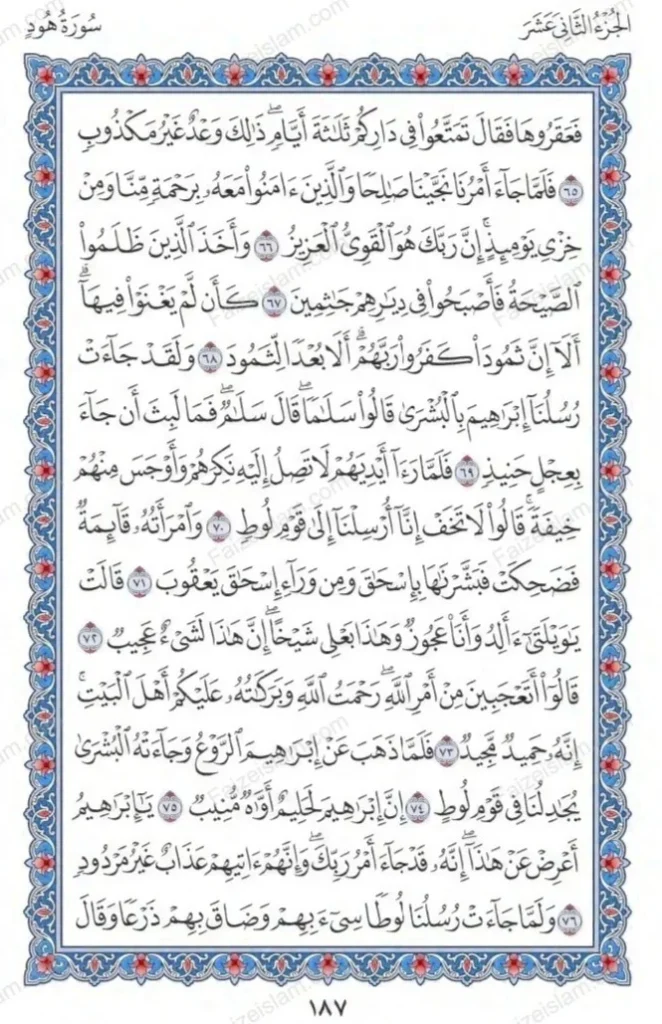 الجُزْءُ الثَّانِي عَشَرَ
سُورَةُ هُودٍ
فَعَقَرُوهَا فَقَالَ تَمَتَّعُوا۟ فِى دَارِكُمْ ثَلَٰثَةَ أَيَّامٍۢ ۖ ذَٰلِكَ وَعْدٌ غَيْرُ مَكْذُوبٍۢ
٦٥ فَلَمَّا جَآءَ أَمْرُنَا نَجَّيْنَا صَٰلِحًۭا وَٱلَّذِينَ ءَامَنُوا۟ مَعَهُۥ بِرَحْمَةٍۢ مِّنَّا وَمِنْ
خِزْىِ يَوْمِئِذٍ ۗ إِنَّ رَبَّكَ هُوَ ٱلْقَوِىُّ ٱلْعَزِيزُ ٦٦ وَأَخَذَ ٱلَّذِينَ ظَلَمُوا۟
ٱلصَّيْحَةُ فَأَصْبَحُوا۟ فِى دِيَٰرِهِمْ جَٰثِمِينَ ٦٧ كَأَن لَّمْ يَغْنَوْا۟ فِيهَآ ۗ
أَلَآ إِنَّ ثَمُودَا۟ كَفَرُوا۟ رَبَّهُمْ ۗ أَلَا بُعْدًۭا لِّثَمُودَ ٦٨ وَلَقَدْ جَآءَتْ
رُسُلُنَآ إِبْرَٰهِيمَ بِٱلْبُشْرَىٰ قَالُوا۟ سَلَٰمًۭا ۖ قَالَ سَلَٰمٌۭ ۖ فَمَا لَبِثَ أَن جَآءَ
بِعِجْلٍ حَنِيذٍۢ ٦٩ فَلَمَّا رَءَآ أَيْدِيَهُمْ لَا تَصِلُ إِلَيْهِ نَكِرَهُمْ وَأَوْجَسَ مِنْهُمْ
خِيفَةًۭ ۚ قَالُوا۟ لَا تَخَفْ إِنَّآ أُرْسِلْنَآ إِلَىٰ قَوْمِ لُوطٍۢ ٧٠ وَٱمْرَأَتُهُۥ قَآئِمَةٌۭ
فَضَحِكَتْ فَبَشَّرْنَٰهَا بِإِسْحَٰقَ وَمِن وَرَآءِ إِسْحَٰقَ يَعْقُوبَ ٧١ قَالَتْ
يَٰوَيْلَتَىٰٓ ءَأَلِدُ وَأَنَا۠ عَجُوزٌۭ وَهَٰذَا بَعْلِى شَيْخًا ۖ إِنَّ هَٰذَا لَشَىْءٌ عَجِيبٌۭ ٧٢
قَالُوٓا۟ أَتَعْجَبِينَ مِنْ أَمْرِ ٱللَّهِ ۖ رَحْمَتُ ٱللَّهِ وَبَرَكَٰتُهُۥ عَلَيْكُمْ أَهْلَ ٱلْبَيْتِ ۚ
إِنَّهُۥ حَمِيدٌۭ مَّجِيدٌۭ ٧٣ فَلَمَّا ذَهَبَ عَنْ إِبْرَٰهِيمَ ٱلرَّوْعُ وَجَآءَتْهُ ٱلْبُشْرَىٰ
يُجَٰدِلُنَا فِى قَوْمِ لُوطٍ ٧٤ إِنَّ إِبْرَٰهِيمَ لَحَلِيمٌ أَوَّٰهٌۭ مُّنِيبٌۭ ٧٥ يَٰٓإِبْرَٰهِيمُ
أَعْرِضْ عَنْ هَٰذَآ ۖ إِنَّهُۥ قَدْ جَآءَ أَمْرُ رَبِّكَ ۖ وَإِنَّهُمْ ءَاتِيهِمْ عَذَابٌ غَيْرُ مَرْدُودٍۢ
٧٦ وَلَمَّا جَآءَتْ رُسُلُنَا لُوطًۭا سِىٓءَ بِهِمْ وَضَاقَ بِهِمْ ذَرْعًۭا وَقَالَ
١٨٧
Faizeislam.com